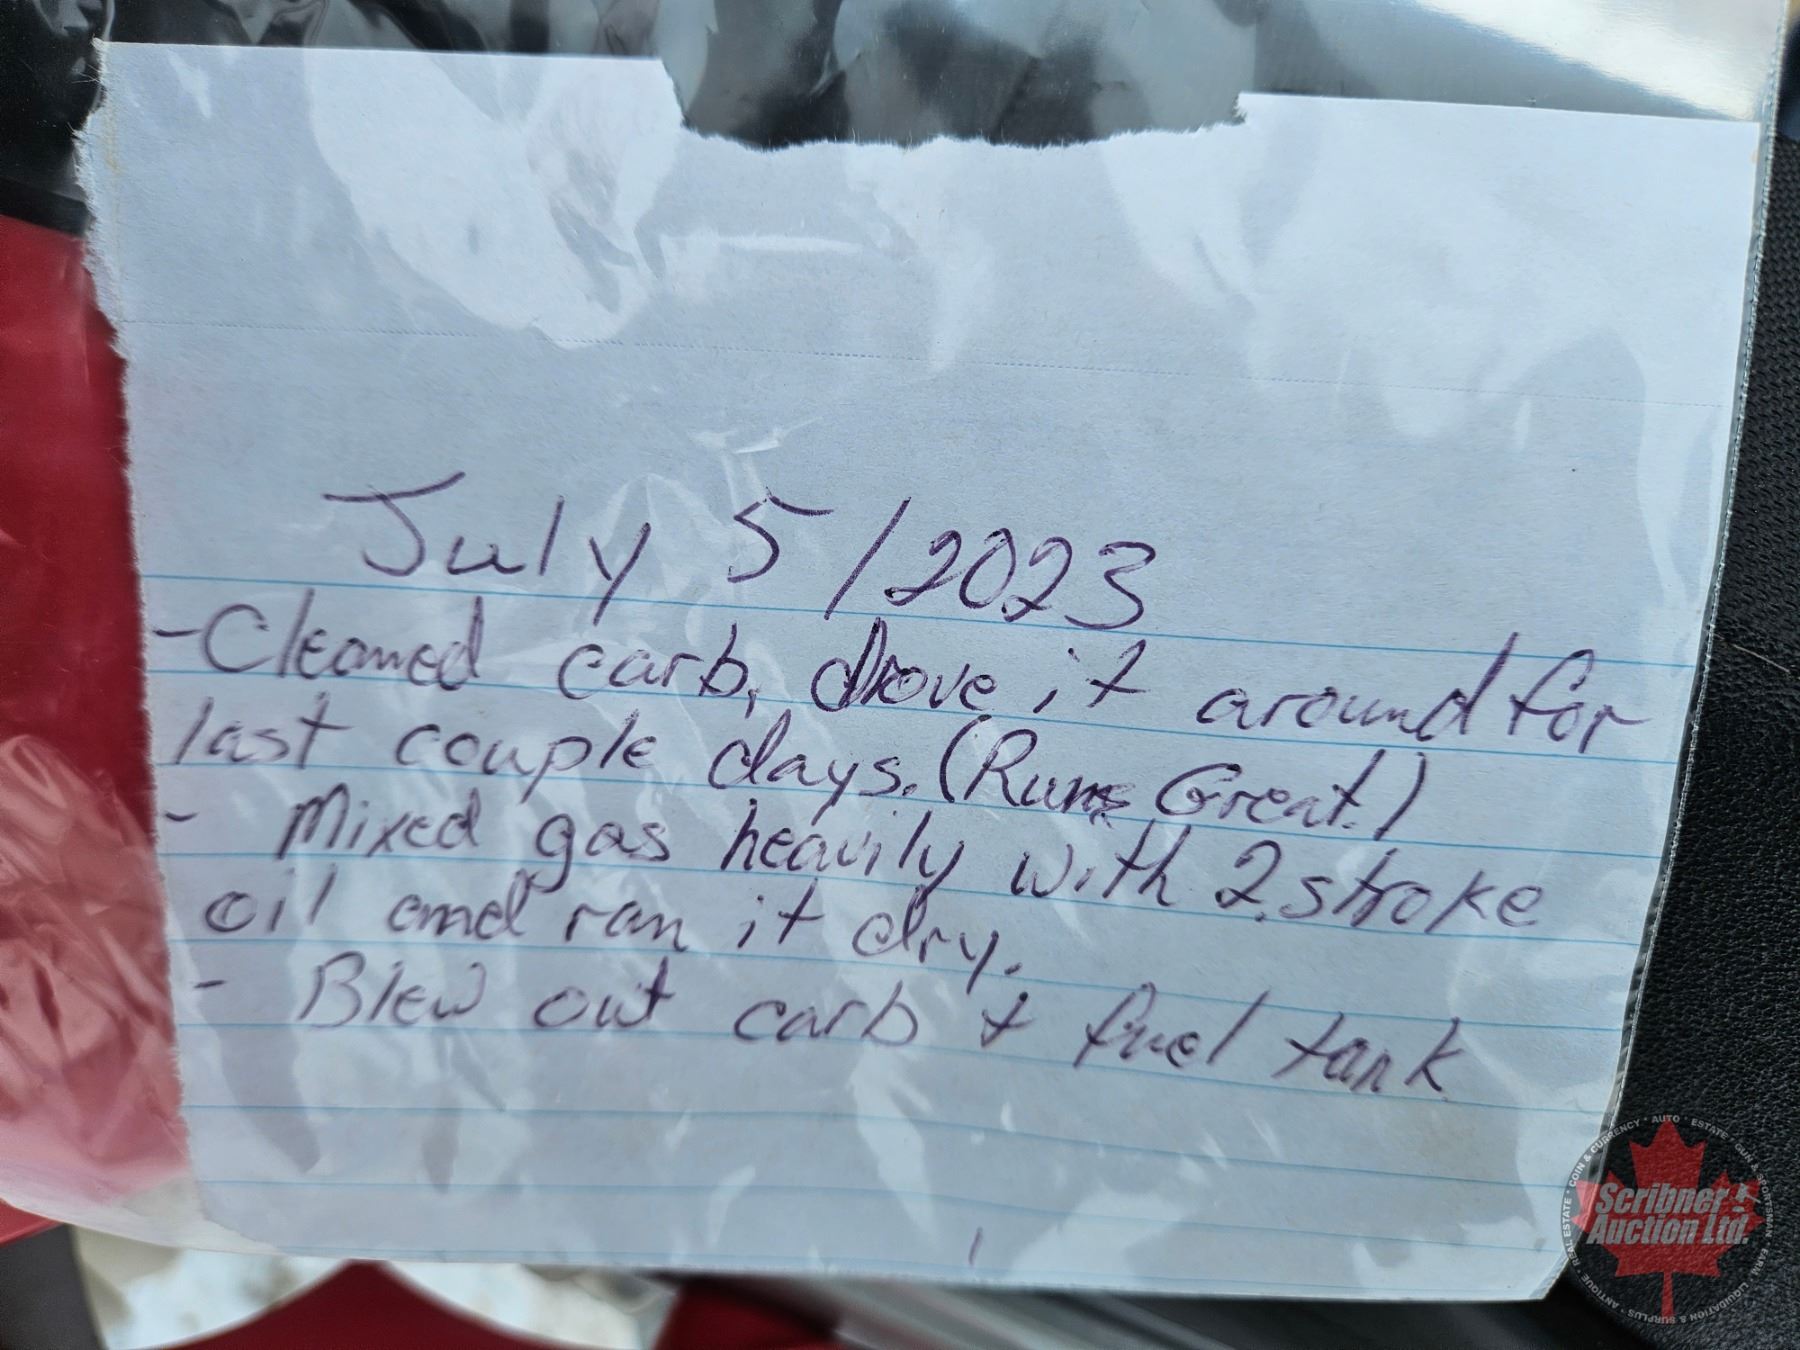 July 5/2023
-Cleaned carb, drove it around for
last couple days. (Runs Great.)
- Mixed gas heavily with 2 stroke
oil and ran it dry.
- Blew out carb & fuel tank
Scribner
Auction Ltd.
AUTO • ESTATE • GUN & SPORTSMAN • FARM • LIQUIDATION & SURPLUS • ANTIQUE • REAL ESTATE • COIN & CURRENCY •